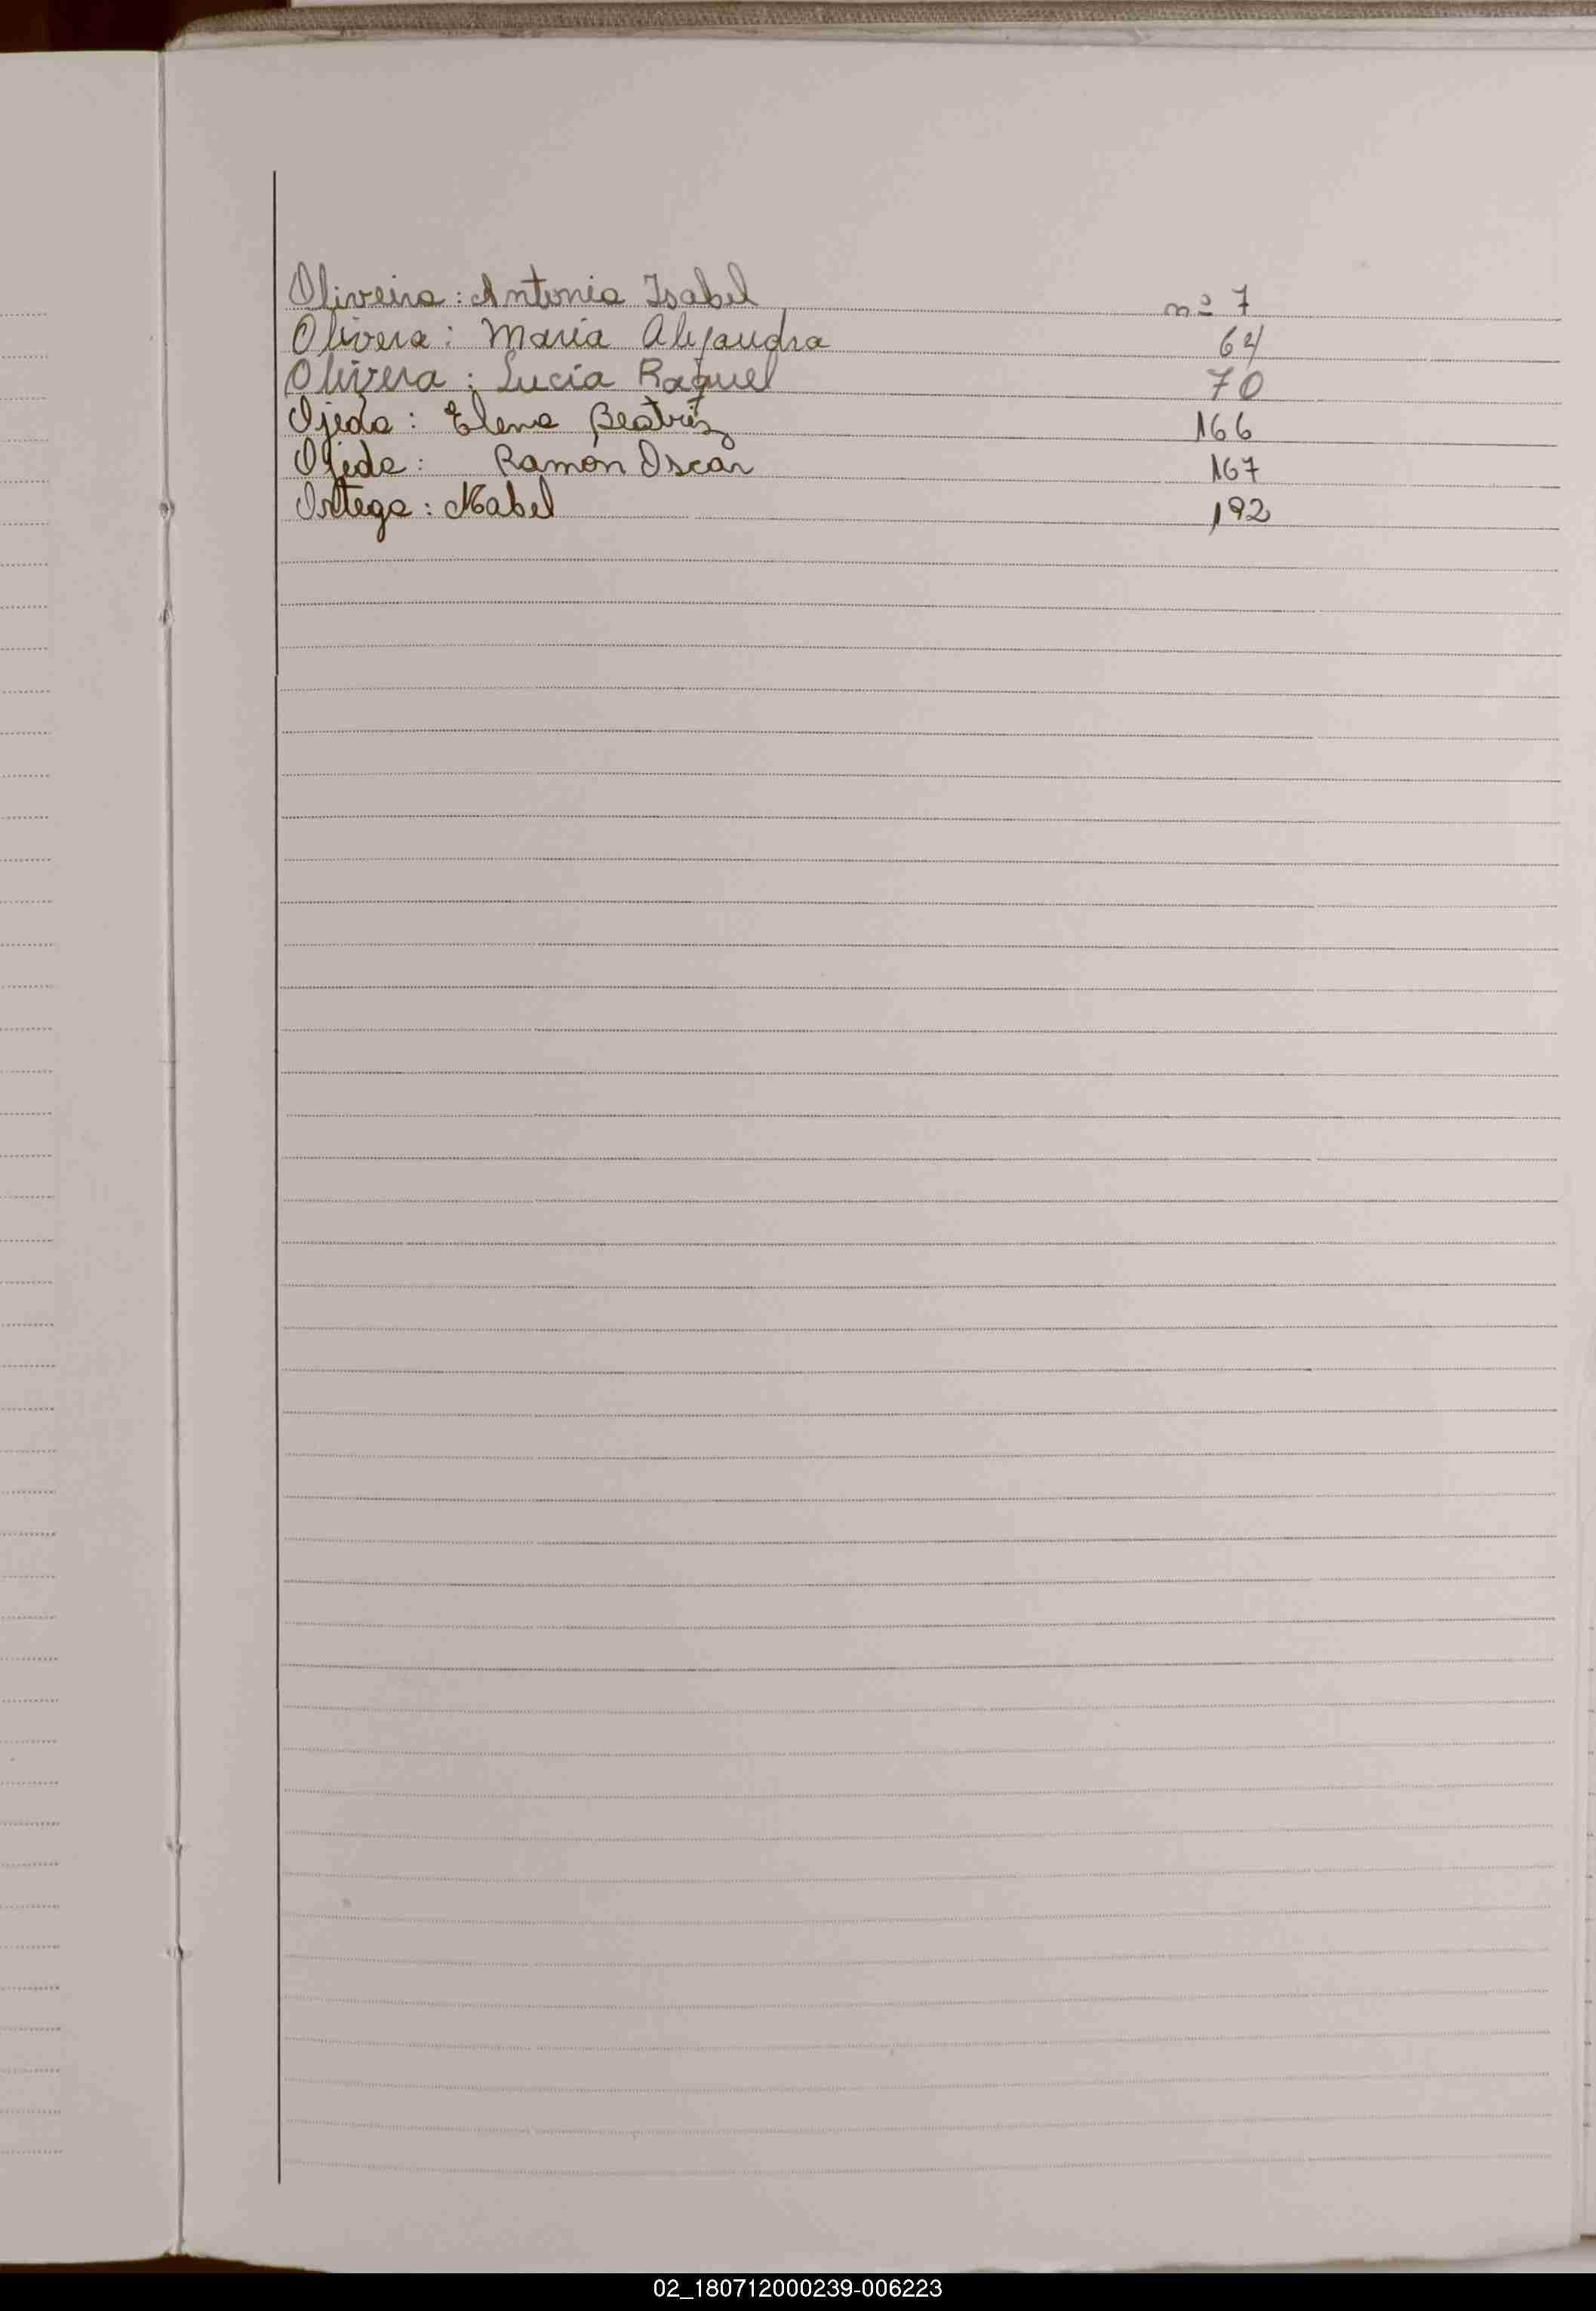 Oliveira: Antonia Isabel nº 7
Olivera: María Alejandra 64
Olivera: Lucía Raquel 70
Ojeda: Elena Beatriz 166
Ojeda: Ramón Oscar 167
Ortega: Mabel 192
02_180712000239-006223